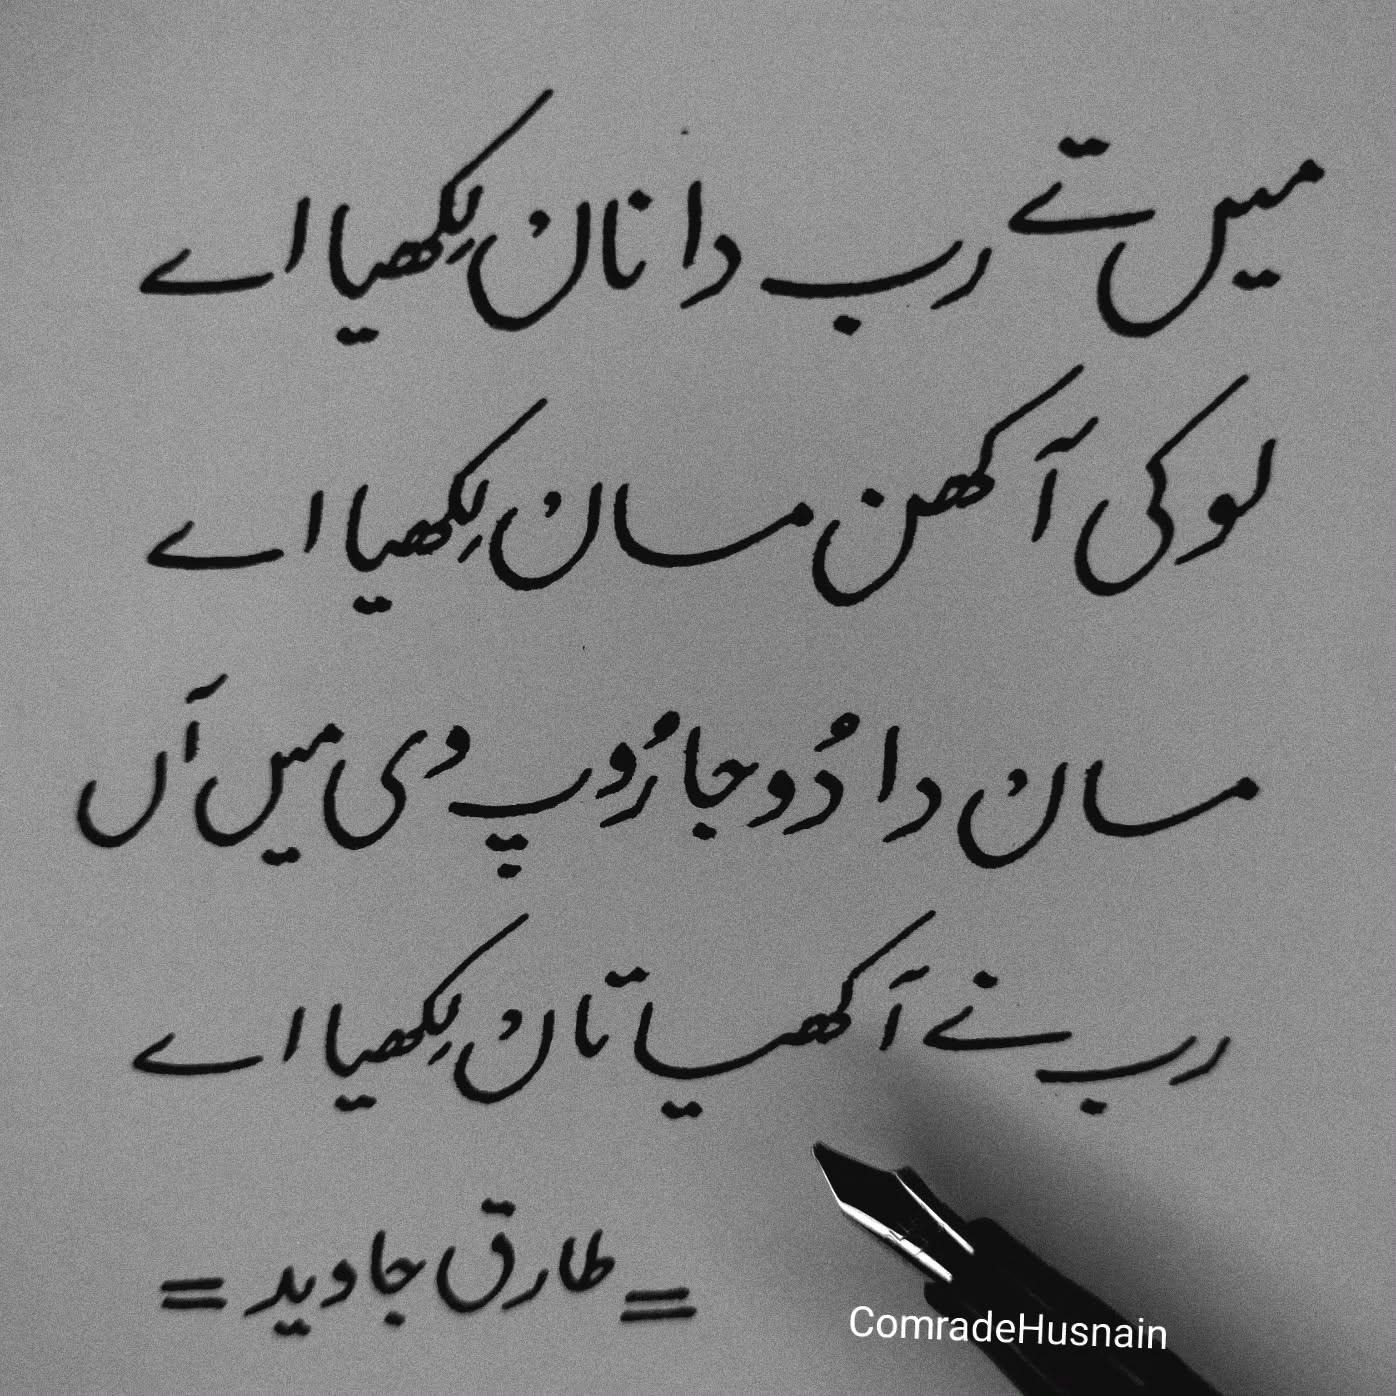 میں تے رب دا ناںؙ لِکھیا اے
لوکی آکھن مساںؙ لِکھیا اے
مساںؙ دا دُوجا رُوپ دی میں آں
رب نے آکھیا تاںؙ لِکھیا اے
= طارق جاوید =
ComradeHusnain